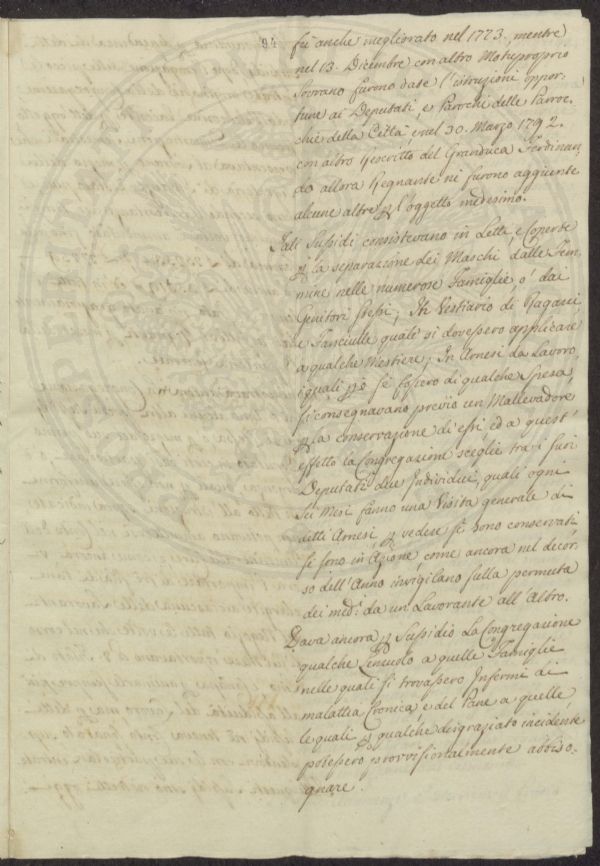 94
fù anche megliorato nel 1773. mentre
nel 13. Dicembre con altro Motuproprio
Sovrano furono date l'istruzioni oppor-
tune ai Deputati, e Parochi delle Parroc-
chie della Città, e nel 30. Marzo 1792.
con altro Rescritto del Granduca Ferdinan-
do allora Regnante ne furono aggiunte
alcune altre p l'oggetto medesimo.
Tali Sussidi consistevano in Letti, e Coperte
p la separazione dei Maschi dalle Fem-
mine nelle numerose Famiglie o' dai
Genitori stessi; In Vestiario di Ragazzi
e Fanciulle quali si dovessero applicare
a qualche Mestiere; In Arnesi da Lavoro,
i quali pò se fossero di qualche spesa
si consegnavano previo un Mallevadore
p la conservazione di essi, ed a quest'
effetto la Congregazione sceglie tra i suoi
Deputati due Individui, quali ogni
sei Mesi fanno una Visita generale di
detti Arnesi p vedere se sono conservati,
se sono in Azione, come ancora nel decor-
so dell'Anno invigilano sulla permuta
dei med:i da un Lavorante all'Altro.
Dava ancora p Sussidio La Congregazione
qualche a quelle Famiglie
nelle quali si trovassero Infermi di
malattia Cronica e del Pane a quelle
le quali p qualche disgraziato incidente
potessero provvisionalmente abbiso-
gnare.